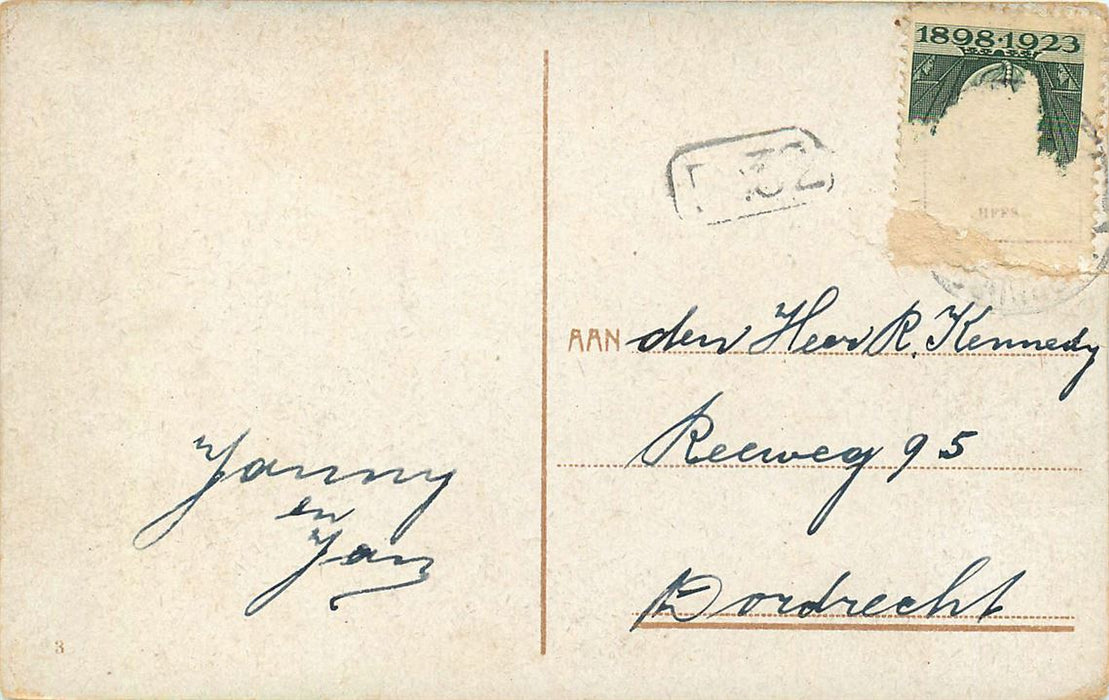 1898·1923
AAN den Heer R. Kennedy
Reeweg 95
Dordrecht
Janny
en
Jan
3